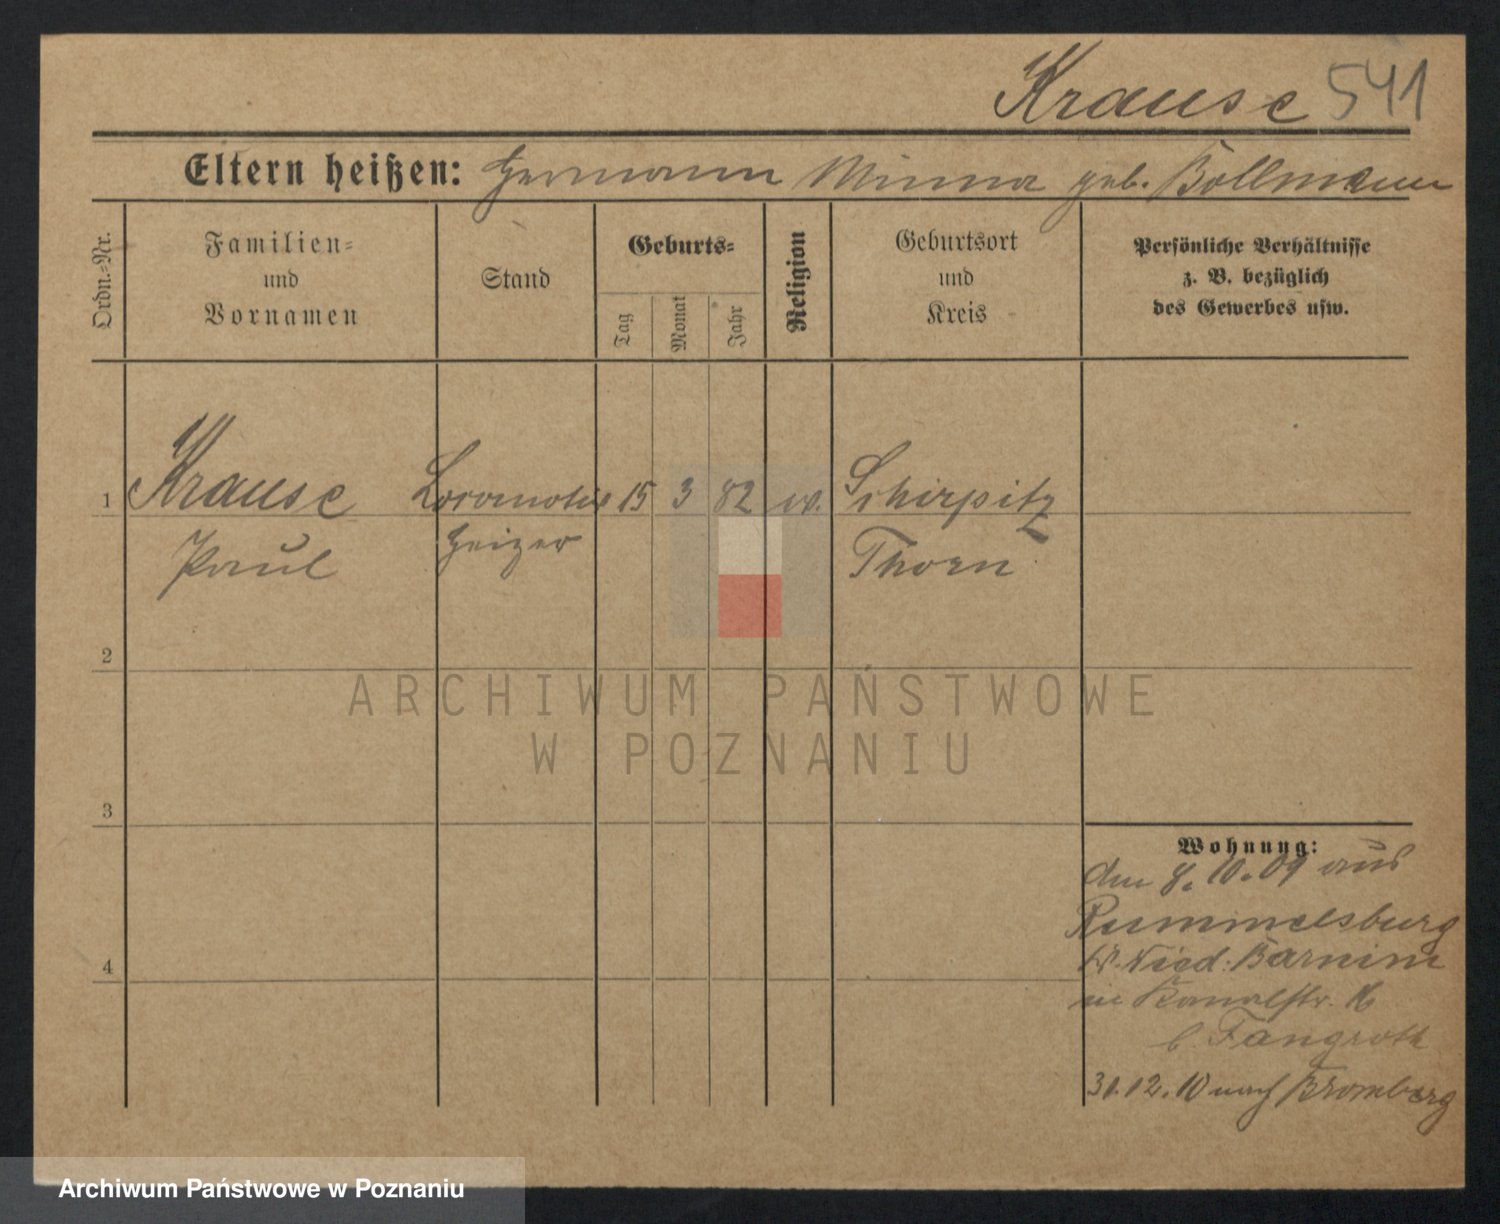 Krause 541
Eltern heißen: Hermann Minna geb. Bollmann
Ordn.-Nr.
Familien-
und
Vornamen
Stand
Geburts-
Tag
Monat
Jahr
Religion
Geburtsort
und
Kreis
Persönliche Verhältnisse
z. B. bezüglich
des Gewerbes usw.
1 Krause Locomotiv 15 3 82 ev. Schirpitz
Paul Heizer Thorn
2
ARCHIWUM PAŃSTWOWE
W POZNANIU
3
Wohnung:
den 8.10.09 aus
Rummelsburg
Kr. Nied. Barnim
in Kanalstr. 16
b. Fangroth
4
31.12.10 nach Bromberg
Archiwum Państwowe w Poznaniu